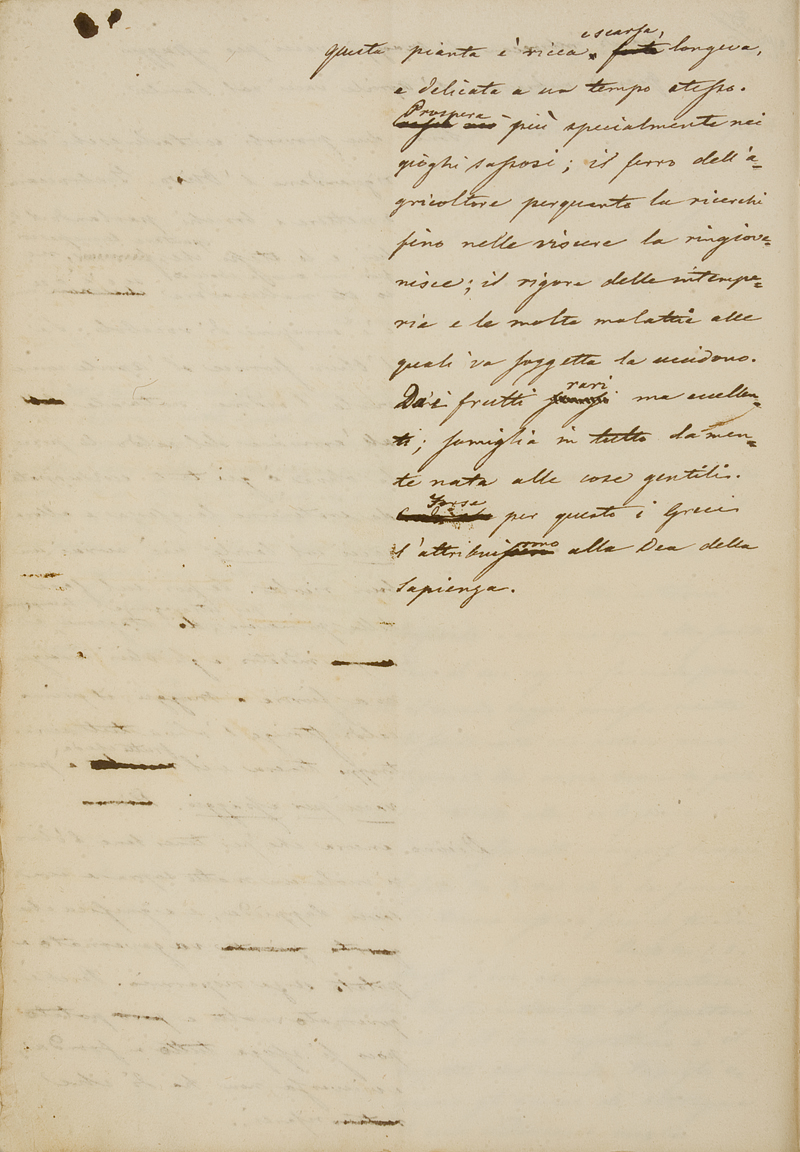 e scarsa,
questa pianta è ricca, forte longeva,
e delicata a un tempo stesso.
Prospera
più specialmente nei
gioghi sassosi; il ferro dell'a=
gricoltore perquanto la ricerchi
fino nelle viscere la ringiova=
nisce; il rigore delle intempe=
rie e le molte malattie alle
quali va soggetta la uccidono.
rari
Dà i frutti scarsi ma eccellen=
ti; famiglia in tutto da men=
te nata alle cose gentili.
Forse
per questo i Greci
l'attribuissero alla Dea della
Sapienza.